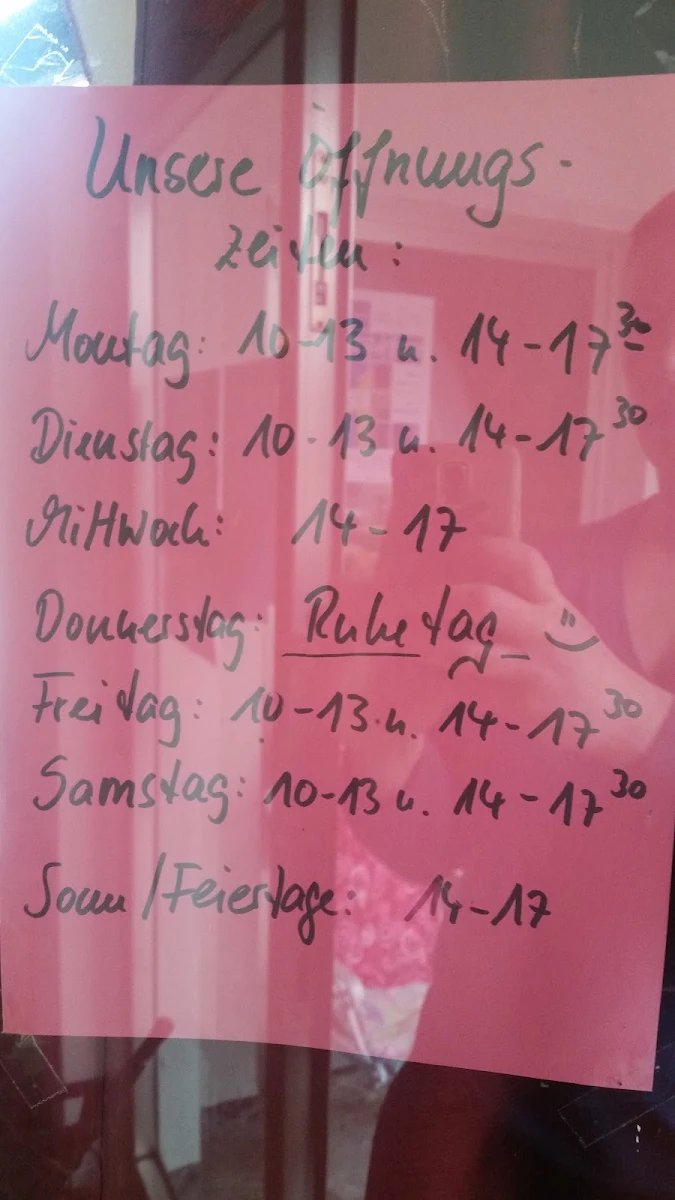 Unsere Öffnungs-
zeiten:
Montag: 10-13 u. 14-17 30
Dienstag: 10-13 u. 14-17 30
Mittwoch: 14-17
Donnerstag: Ruhetag
Freitag: 10-13 u. 14-17 30
Samstag: 10-13 u. 14-17 30
Sonn/Feiertage: 14-17